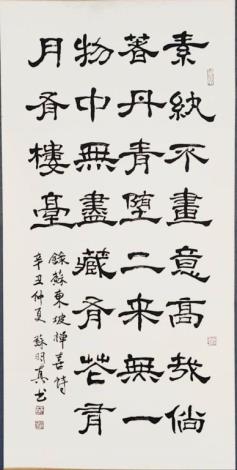 素紈不畫意高哉倘
著丹青墮二来無一
物中無盡藏有花有
月有樓臺
錄蘇東坡禪喜詩
辛丑仲夏 蘇明真书